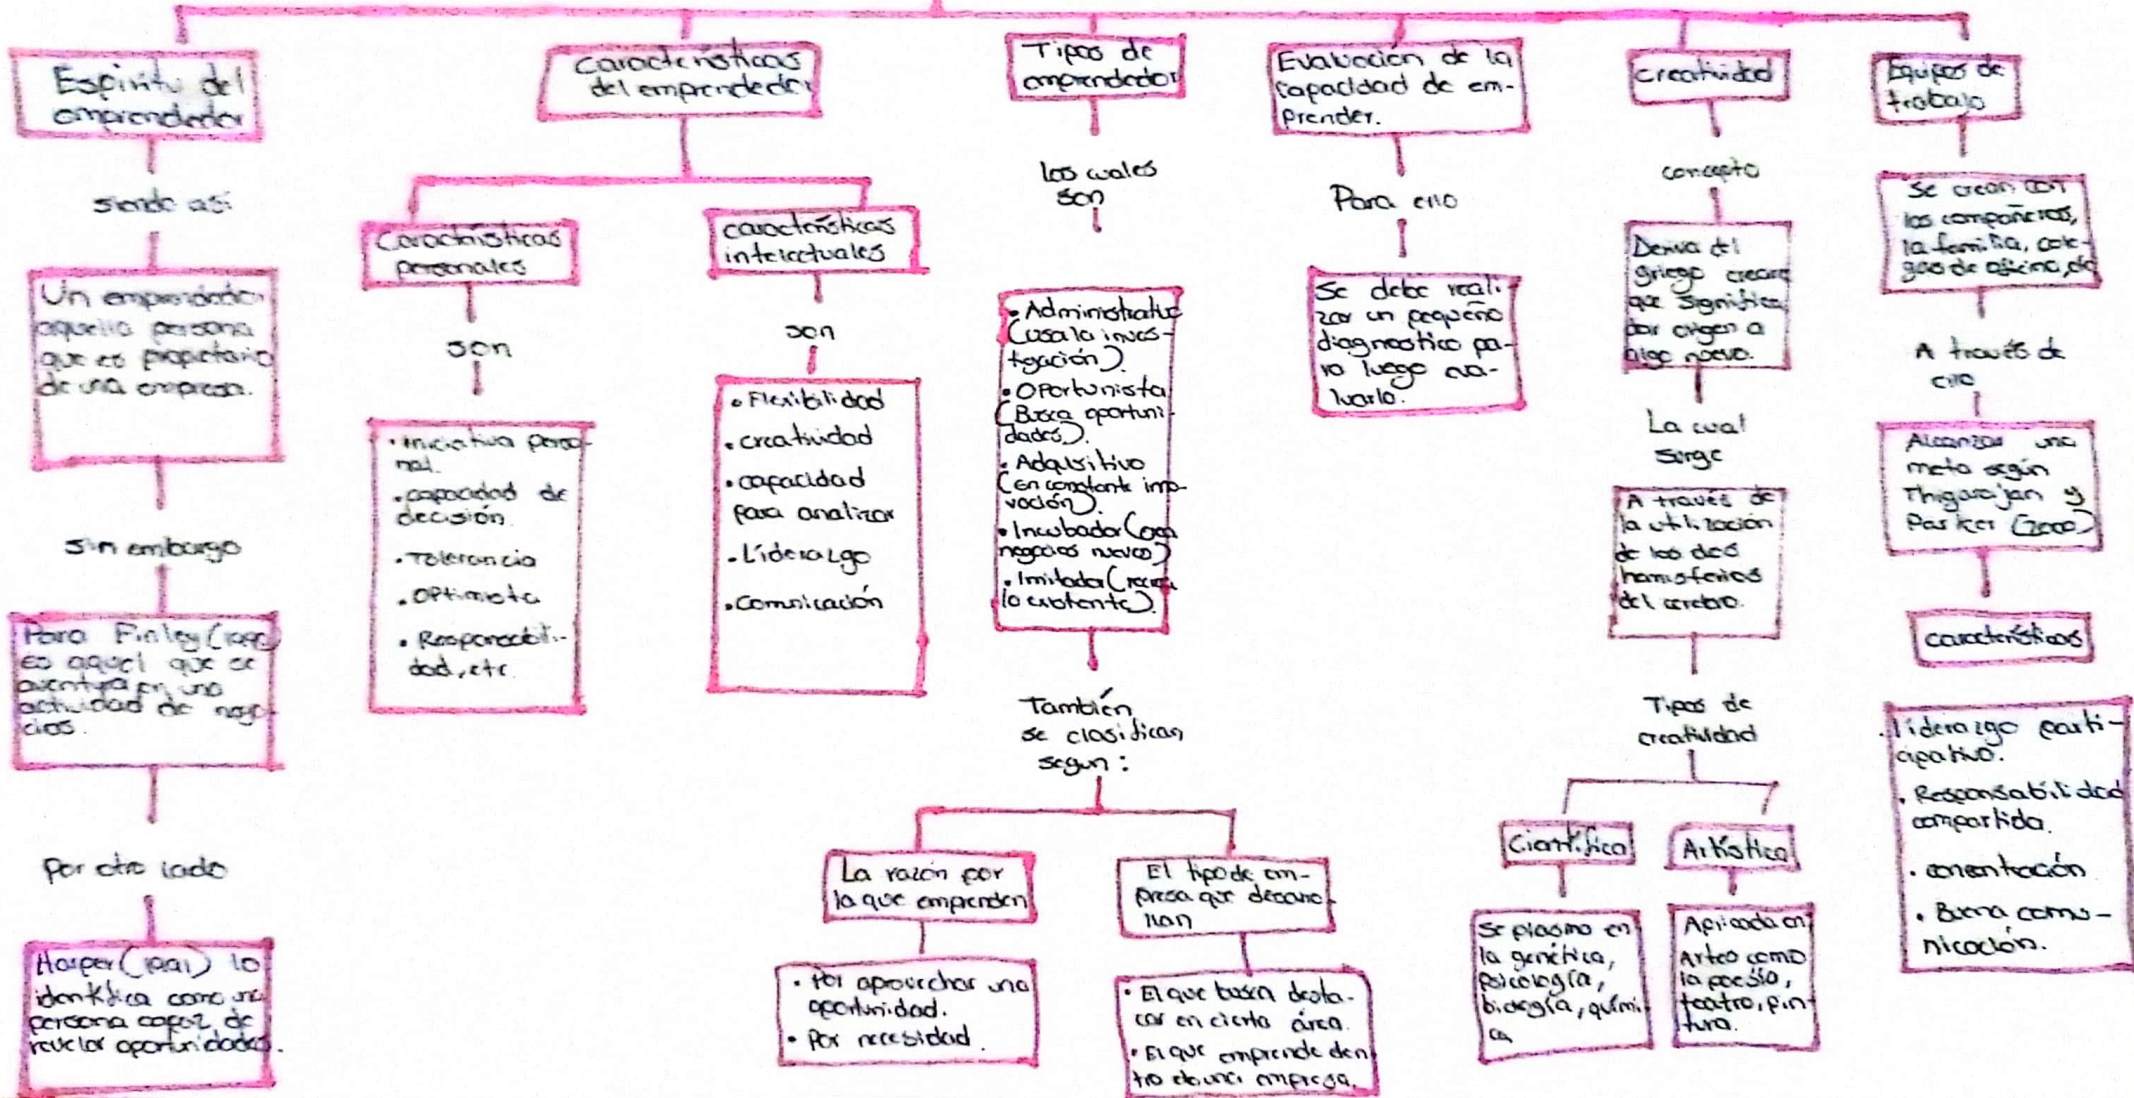 Espiritu del
emprendedor
siendo asi
Un emprendedor
aquella persona
que es propietario
de una empresa.
sin embargo
Para Finley (1990)
es aquel que se
aventura en una
actividad de nego-
cios.
Por otro lado
Harper (1991) lo
identifica como una
persona capaz de
revelar oportunidades.
Características
del emprendedor
Caracteristicas
personales
son
• Iniciativa perso-
nal.
• capacidad de
decisión.
• Tolerancia
• Optimista
• Responsabili-
dad, etc
características
intelectuales
son
• Flexibilidad
• creatividad
• capacidad
para analizar
• Liderazgo
• Comnicación
Tipos de
emprendedor
los cuales
son
• Administrativo
(usa la inves-
tigación).
• Oportunista
(Busca oportuni-
dades).
• Adquisitivo
(en constante inno-
vación).
• Incubador (crea
negocios nuevos)
• Imitador (recrea
lo existente).
También
se clasifican
segun:
La razón por
la que emprenden
• Por aprovechar una
oportunidad.
• Por necesidad.
El tipo de em-
presa que desarro-
llan
• El que busca desta-
car en cierta área.
• El que emprende den
tro de una empresa.
Evaluación de la
capacidad de em-
prender.
Para ello
Se debe reali-
zar un pequeño
diagnostico pa-
ra luego eva-
luarlo.
creatividad
concepto
Deriva del
griego creare
que significa
dar origen a
algo nuevo.
La cual
surge
A través de
la utilización
de los dos
hemisferios
del cerebro.
Tipos de
creatividad
Científica
Se plasma en
la genética,
psicología,
biología, quími-
ca
Artística
Aplicada en
Artes como
la poesía,
teatro, pin-
tura.
Equipos de
trabajo
Se crean con
los compañeros,
la familia, cole-
gas de oficina, etc
A través de
ello
Alcanzar una
meta según
Thigarajan y
Parker (2000)
características
• liderazgo parti-
cipativo.
• Responsabilidad
compartida.
• concentración
• Buena comu-
nicación.